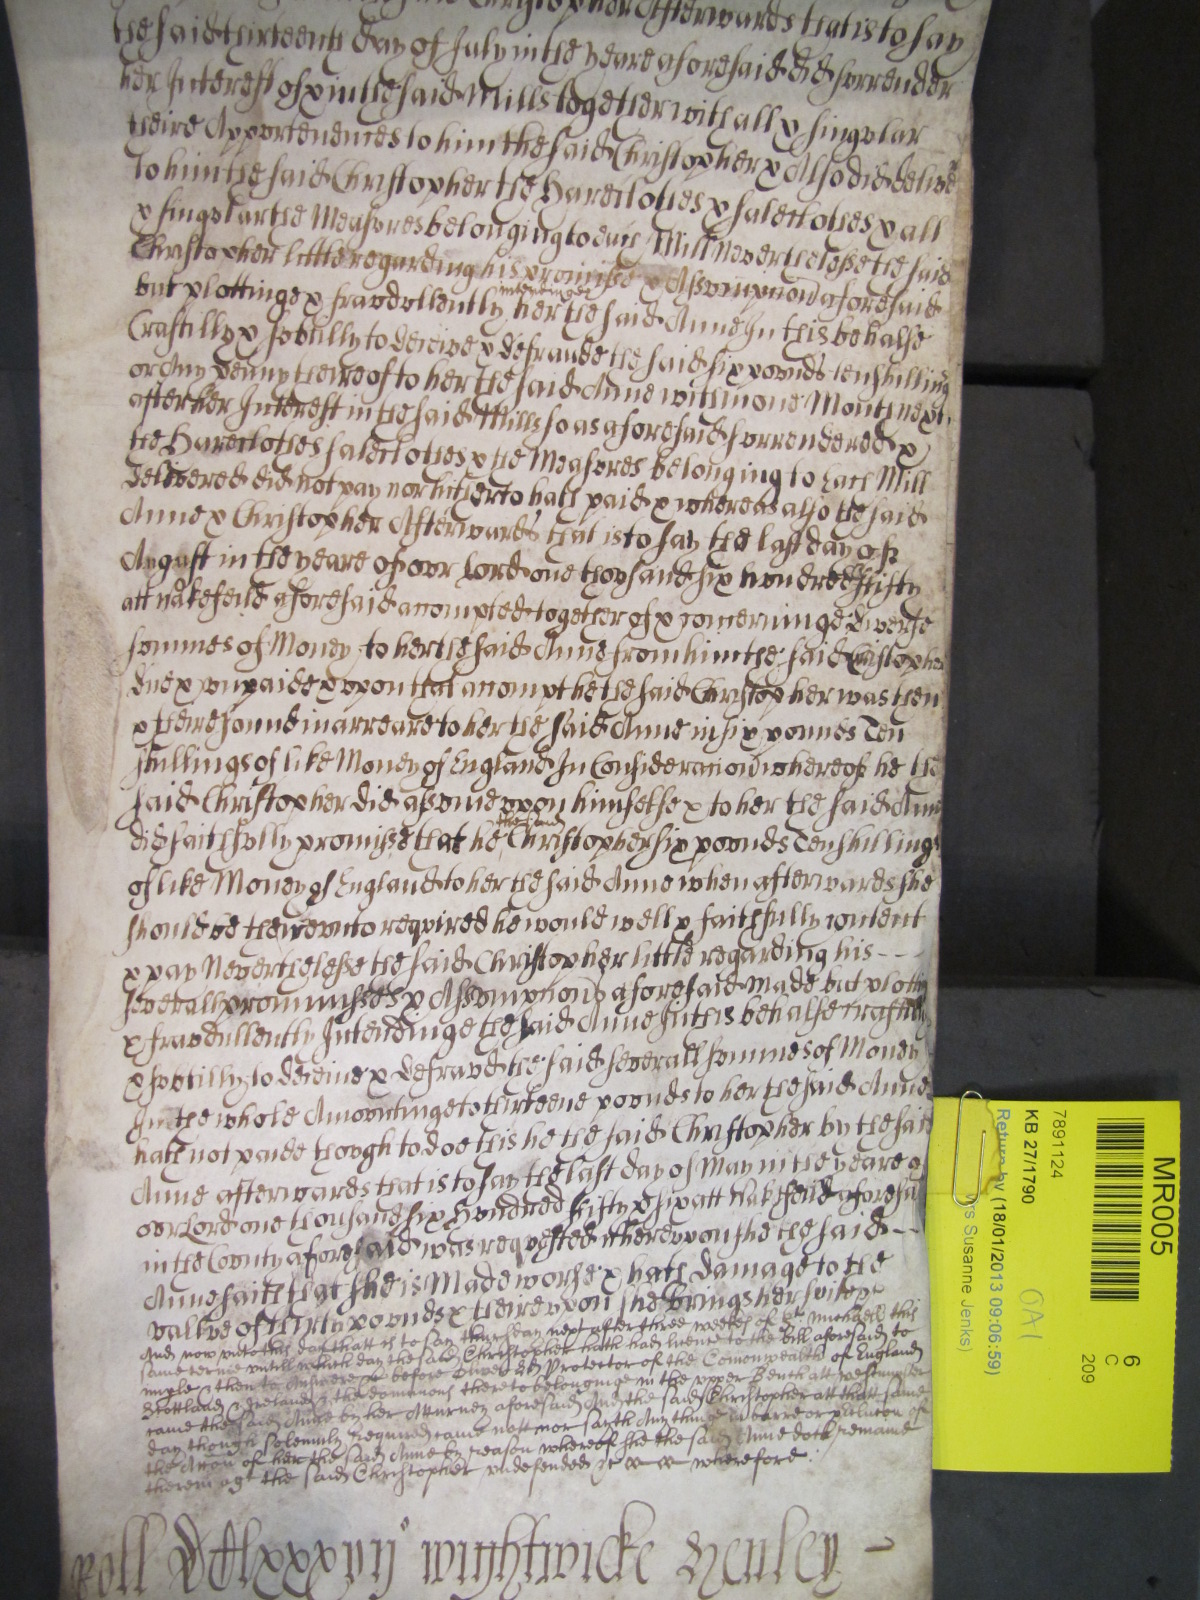 Christopher Afterwards that is to say
the said thirteenth day of July in the yeare aforesaid did surrender
her Interest of & in the said Mills together with all & singular
theire Appurtenences to him the said Christopher & Also did deliver
to him the said Christopher the Hareclothes & saleclothes & all
& singular the Measures belonging to each Mill Neverthelesse the said
Christopher little regarding his promise & Assumpcion aforesaid
but plottinge & fraudullently intendinge her the said Anne In this behalfe
Craftilly & subtilly to deceive & defraude the said six pounds ten shillings
or Any penny thereof to her the said Anne within one Month next
after her Interest in the said Mills so as aforesaid surrendered &
the Hareclothes saleclothes & the Measures belonging to each Mill
delivered did not pay nor hitherto hath paid & whereas also the said
Anne & Christopher Afterwards that is to say the last day of
August in the yeare of our Lord one thousand six hundred & fifty
att Wakefeild aforesaid accompted together of & concerninge diverse
summes of Money to her the said Anne from him the said Christopher
due & unpaide & upon that accompt he the said Christopher was then
& there found in arreare to her the said Anne in six pounds Ten
shillings of like Money of England In Consideracion whereof he the
said Christopher did assume upon himselfe & to her the said Anne
did faithfully promisse that he the said Christopher six pounds Ten shillings
of like Money of England to her the said Anne when afterwards she
should be thereunto required he would well & faithfully content
& pay Neverthelesse the said Christopher little regarding his - - -
severall promisses & Assumptions aforesaid made but plotting
& fraudullently Intendinge the said Anne In this behalfe craftilly
& subtilly to deceive & defraud the said severall summes of Money
In the whole Amountinge to thirteene pounds to her the said Anne
hath not paide though to doe this he the said Christopher by the said
Anne afterwards that is to say the last day of May in the yeare of
our Lord one thousand six Hundred Fifty & six att Wakefeild aforesaid
in the County aforesaid was requested wherdupon she the said - -
Anne saith that she is Made worse & hath Damage to the
vallue of thirty pounds & thereupon she brings her suite &c
And now untill this day that is to say Thursday next after three weekes of St Michaell this
same terme untill which day the said Christopher hath had licence to the Bill aforesaid to
imple & then to Answere &c before Oliver Ld Protector of the Comonwealth of England
Scottland & Ireland & the dominions thereto belonginge in the upper Bench att Westminster
came the said Anne by her Atturney aforesaid And the said Christopher att that same
day though solemnly required came nott nor sayth Any thinge in barre or preclucon of
the Accon of her the said Anne by reason whereof she the said Anne doth remaine
therein agt the said Christopher undefended &c wherefore
Roll Dlxxxvij Wightwicke Henley -
MR005
6
C
209
7891124
KB 27/1790
Return by (18/01/2013 09:06:59)
Mrs Susanne Jenks)